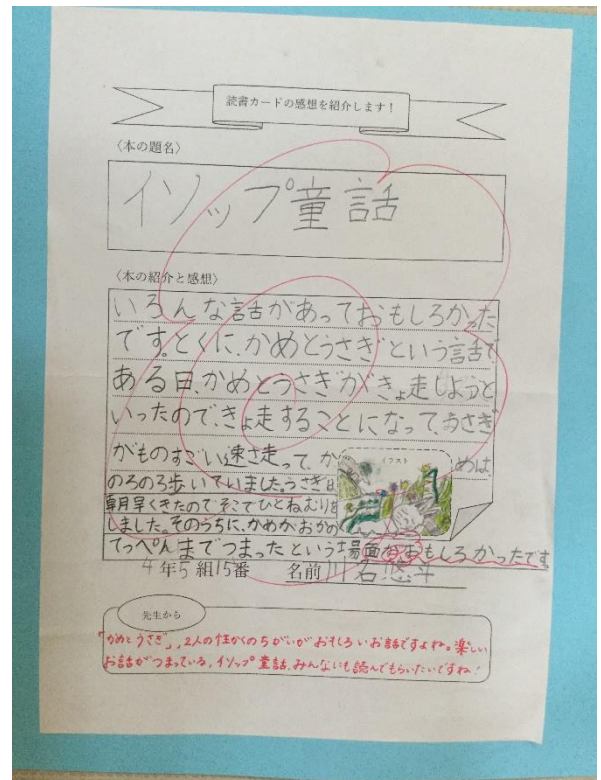 読書カードの感想を紹介します！
〈本の題名〉
イソップ童話
〈本の紹介と感想〉
いろんな話があっておもしろかった
です。とくに、かめとうさぎという話で
ある日、かめとうさぎがきょ走しようと
いったので、きょ走することになって、うさぎ
がものすごい速さ走って、か
イラスト
めは
のろのろ歩いていました。うさぎは
朝早くきたので、そこでひとねむりを
しました。そのうちに、かめがおかの
てっぺんまでつまったという場面がおもしろかったです
4年5組15番 名前 石悠斗
先生から
「かめとうさぎ」、2人の性かくのちがいがおもしろいお話ですよね。楽しい
お話がつまっている、イソップ童話、みんなにも読んでもらいたいですね！